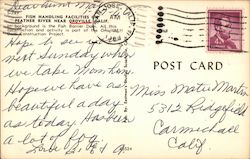 Dear Aunt Ma
FISH HANDLING FACILITIES ON
FEATHER RIVER NEAR OROVILLE, CALIF.
background is the Fish Barrier Dam
and activity is part of the Oroville
Construction Project.
Hope to see you
next Sunday when
we take Mom home
Hope we have as
beautiful a day
as today. Has been
a lot of fun
POST CARD
Miss Mate Martin
5312 Ridgefield
Carmichael
Calif.